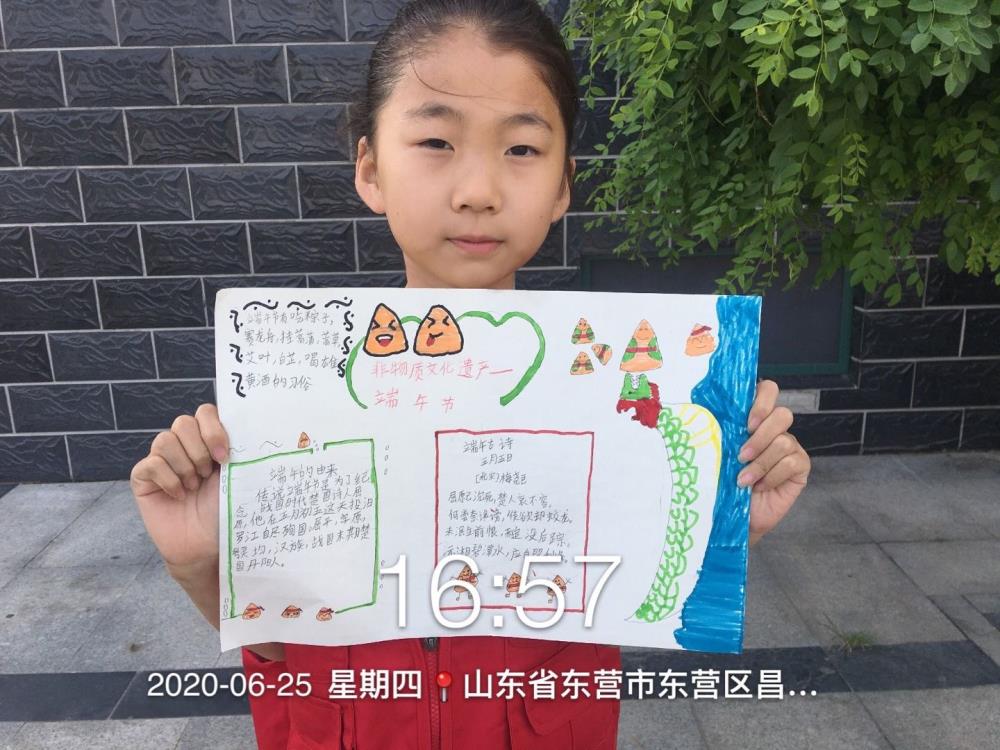 端午节有吃粽子,
赛龙舟,挂菖蒲,蒿草,
艾叶,白芷,喝雄
黄酒的习俗
非物质文化遗产—
端午节
端午的由来
传说端午节是为了纪
念,战国时代楚国诗人屈
原,他在五月初五这天投汨
罗江自尽殉国。屈平,字原,
汉族,战国末期楚
国丹阳人。
端午古诗
五月五日
[北宋]梅尧臣
屈原已沉死,楚人哀不容。
何尝奈谗谤,徒欲却蛟龙。
未泯生前恨,没后踪。
沅湘碧潭水,应自照千峰。
16:57
2020-06-25 星期四 山东省东营市东营区昌...